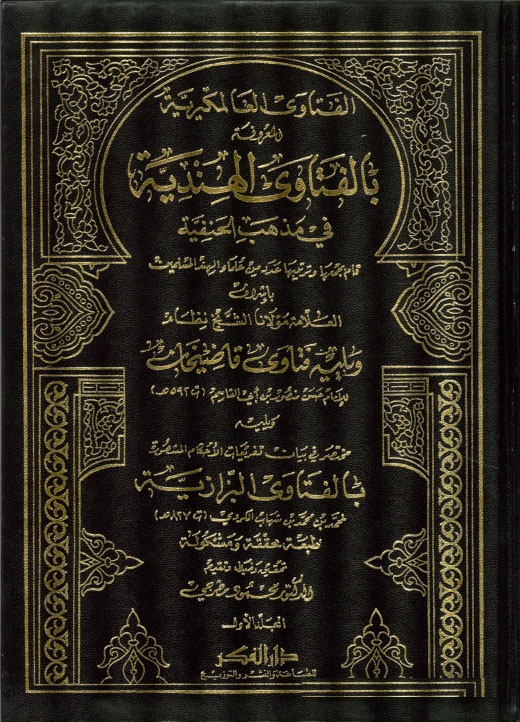 الفتاوى العالمكيرية
المعروفة
بالفتاوى الهندية
في مذهب الحنفية
قام بجمعها وترتيبها عدد من علماء الهند المسلمين
بإشراف
العلامة مولانا الشيخ نظام
ويليه فتاوى قاضيخان
للإمام حسن منصور بن أبي القاسم (ت ٥٩٢هـ)
ويليه
مختصر في بيان تفريعات الأحكام المشهورة
بالفتاوى البزازية
لمحمد بن محمد بن شهاب الكردي (ت ٨٢٧هـ)
طبعة محققة ومشكولة
تحقيق وضبط وتقديم
الدكتور محمود مطرجي
المجلد الأول
دار الفكر
للطباعة والنشر والتوزيع